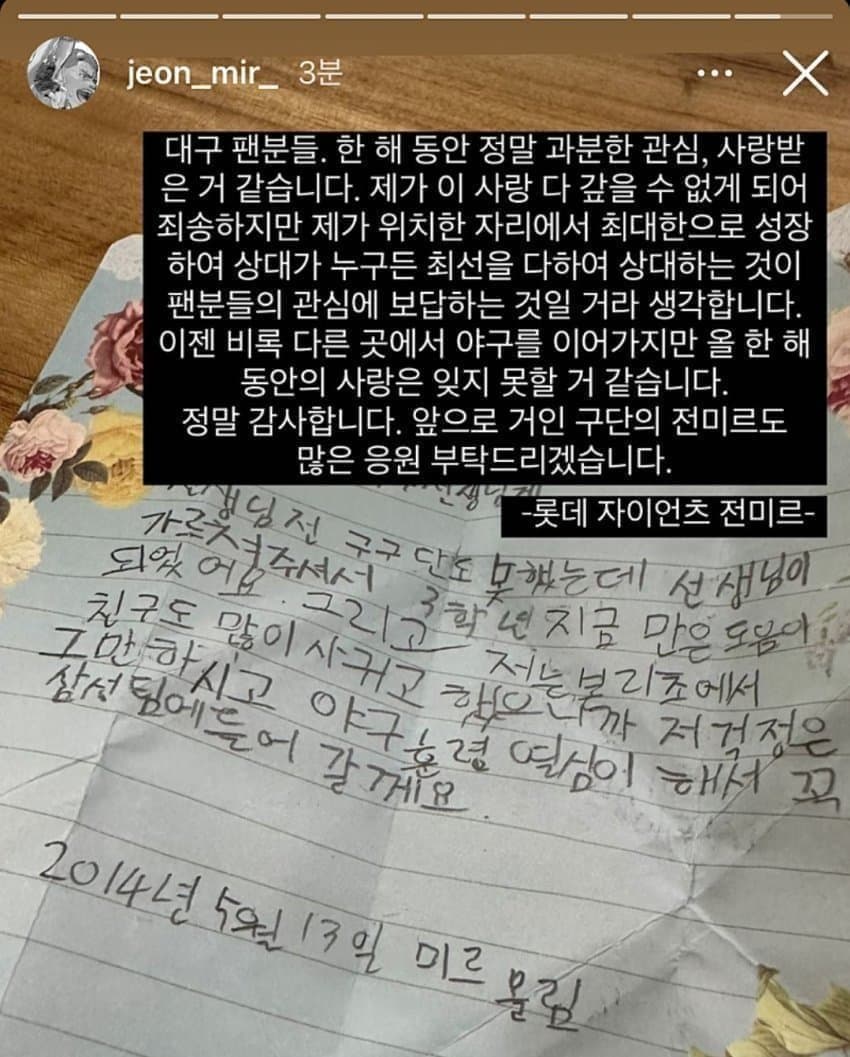 jeon_mir_ 3분
대구 팬분들. 한 해 동안 정말 과분한 관심, 사랑받
은 거 같습니다. 제가 이 사랑 다 갚을 수 없게 되어
죄송하지만 제가 위치한 자리에서 최대한으로 성장
하여 상대가 누구든 최선을 다하여 상대하는 것이
팬분들의 관심에 보답하는 것일 거라 생각합니다.
이젠 비록 다른 곳에서 야구를 이어가지만 올 한 해
동안의 사랑은 잊지 못할 거 같습니다.
정말 감사합니다. 앞으로 거인 구단의 전미르도
많은 응원 부탁드리겠습니다.
-롯데 자이언츠 전미르-
선생님께
선생님 전 구구단도 못했는데 선생님이
가르쳐주셔서 3학년 지금 만은 도움이
되었어요. 그리고 저는 본리초에서
친구도 많이 사귀고 했으니까 저 걱정은
그만하시고 야구 훈령 열심이 해서 꼭
삼성팀에 들어 갈께요.
2014년 5월 13일 미르 올림